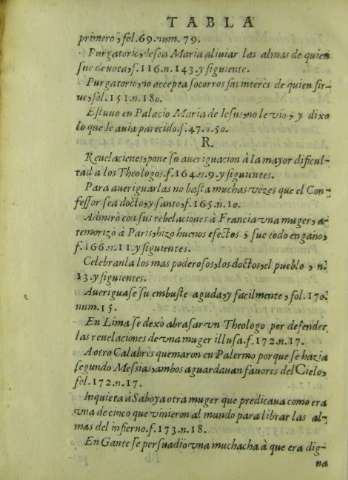 TABLA
primero, fol.69.num.79.
Purgatorio, desea Maria aliviar las almas de quien
fue devota, f.116.n.143.y siguiente.
Purgatorio, no accepta socorros sus interés de quien sir-
ve, fol.151.n.180.
Estuvo en Palacio Maria de Iesus, no le vio, y dixo
lo que le avia parecido.f.47.n.50.
R.
Revelaciones, pone su averiguacion à la mayor dificul-
tad a los Theologos.f.164.n.9.y siguientes.
Para averiguarlas no basta muchas vezes que el Con-
fessor sea docto, y santo, f.165.n.10.
Admirò con sus rebelaciones à Francia vna muger, a-
temorizò à Paris, hizo buenos efectos, y fue todo engaño,
f.166.n.11.y siguientes.
Celebranla los mas poderosos, los doctos, el pueblo, n.
13.y siguientes.
Averiguase su embuste aguda, y facilmente, fol.170.
num.15.
En Lima se dexò abrasar vn Theologo por defender
las revelaciones de vna muger illusa.f.172.n.17.
A otro Calabrès quemaron en Palermo porque se hazia
segundo Messias, ambos aguardavan favores del Cielo,
fol.172.n.17.
Inquieta à Saboya otra muger que predicava como era
vna de cinco que vinieron al mundo para librar las al-
mas del infierno.f.173.n.18.
En Gante se persuadiò vna muchacha à que era dig-
na